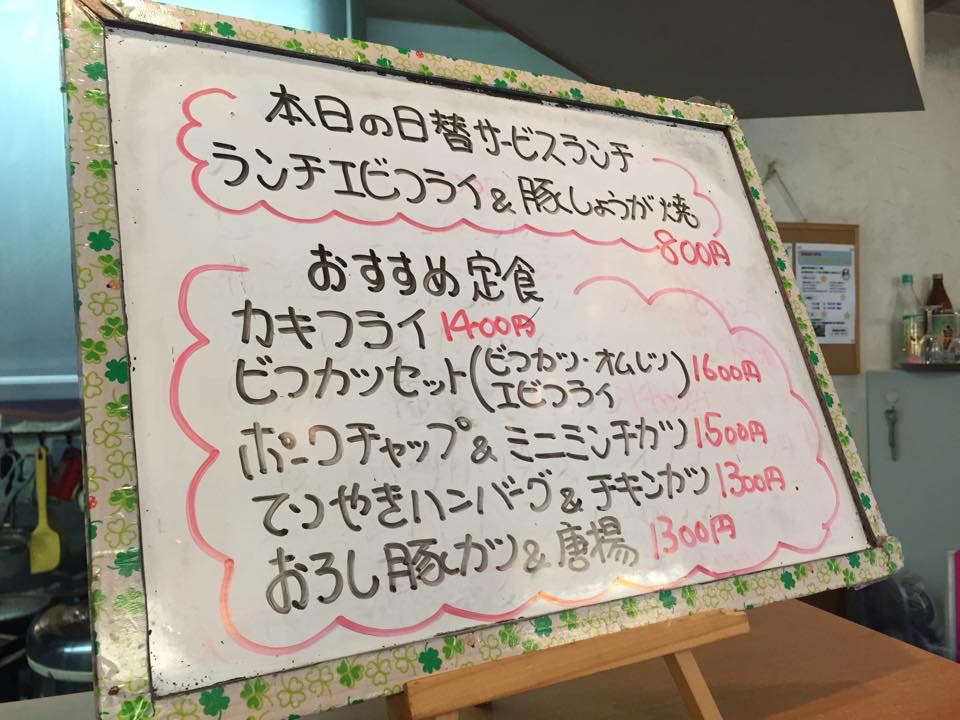 本日の日替サービスランチ
ランチエビフライ&豚しょうが焼
800円
おすすめ定食
カキフライ1400円
ビフカツセット(ビフカツ・オムレツ
エビフライ)1600円
ポークチャップ&ミニミンチカツ1500円
てりやきハンバーグ&チキンカツ1300円.
おろし豚ヒカツ&唐揚1300円